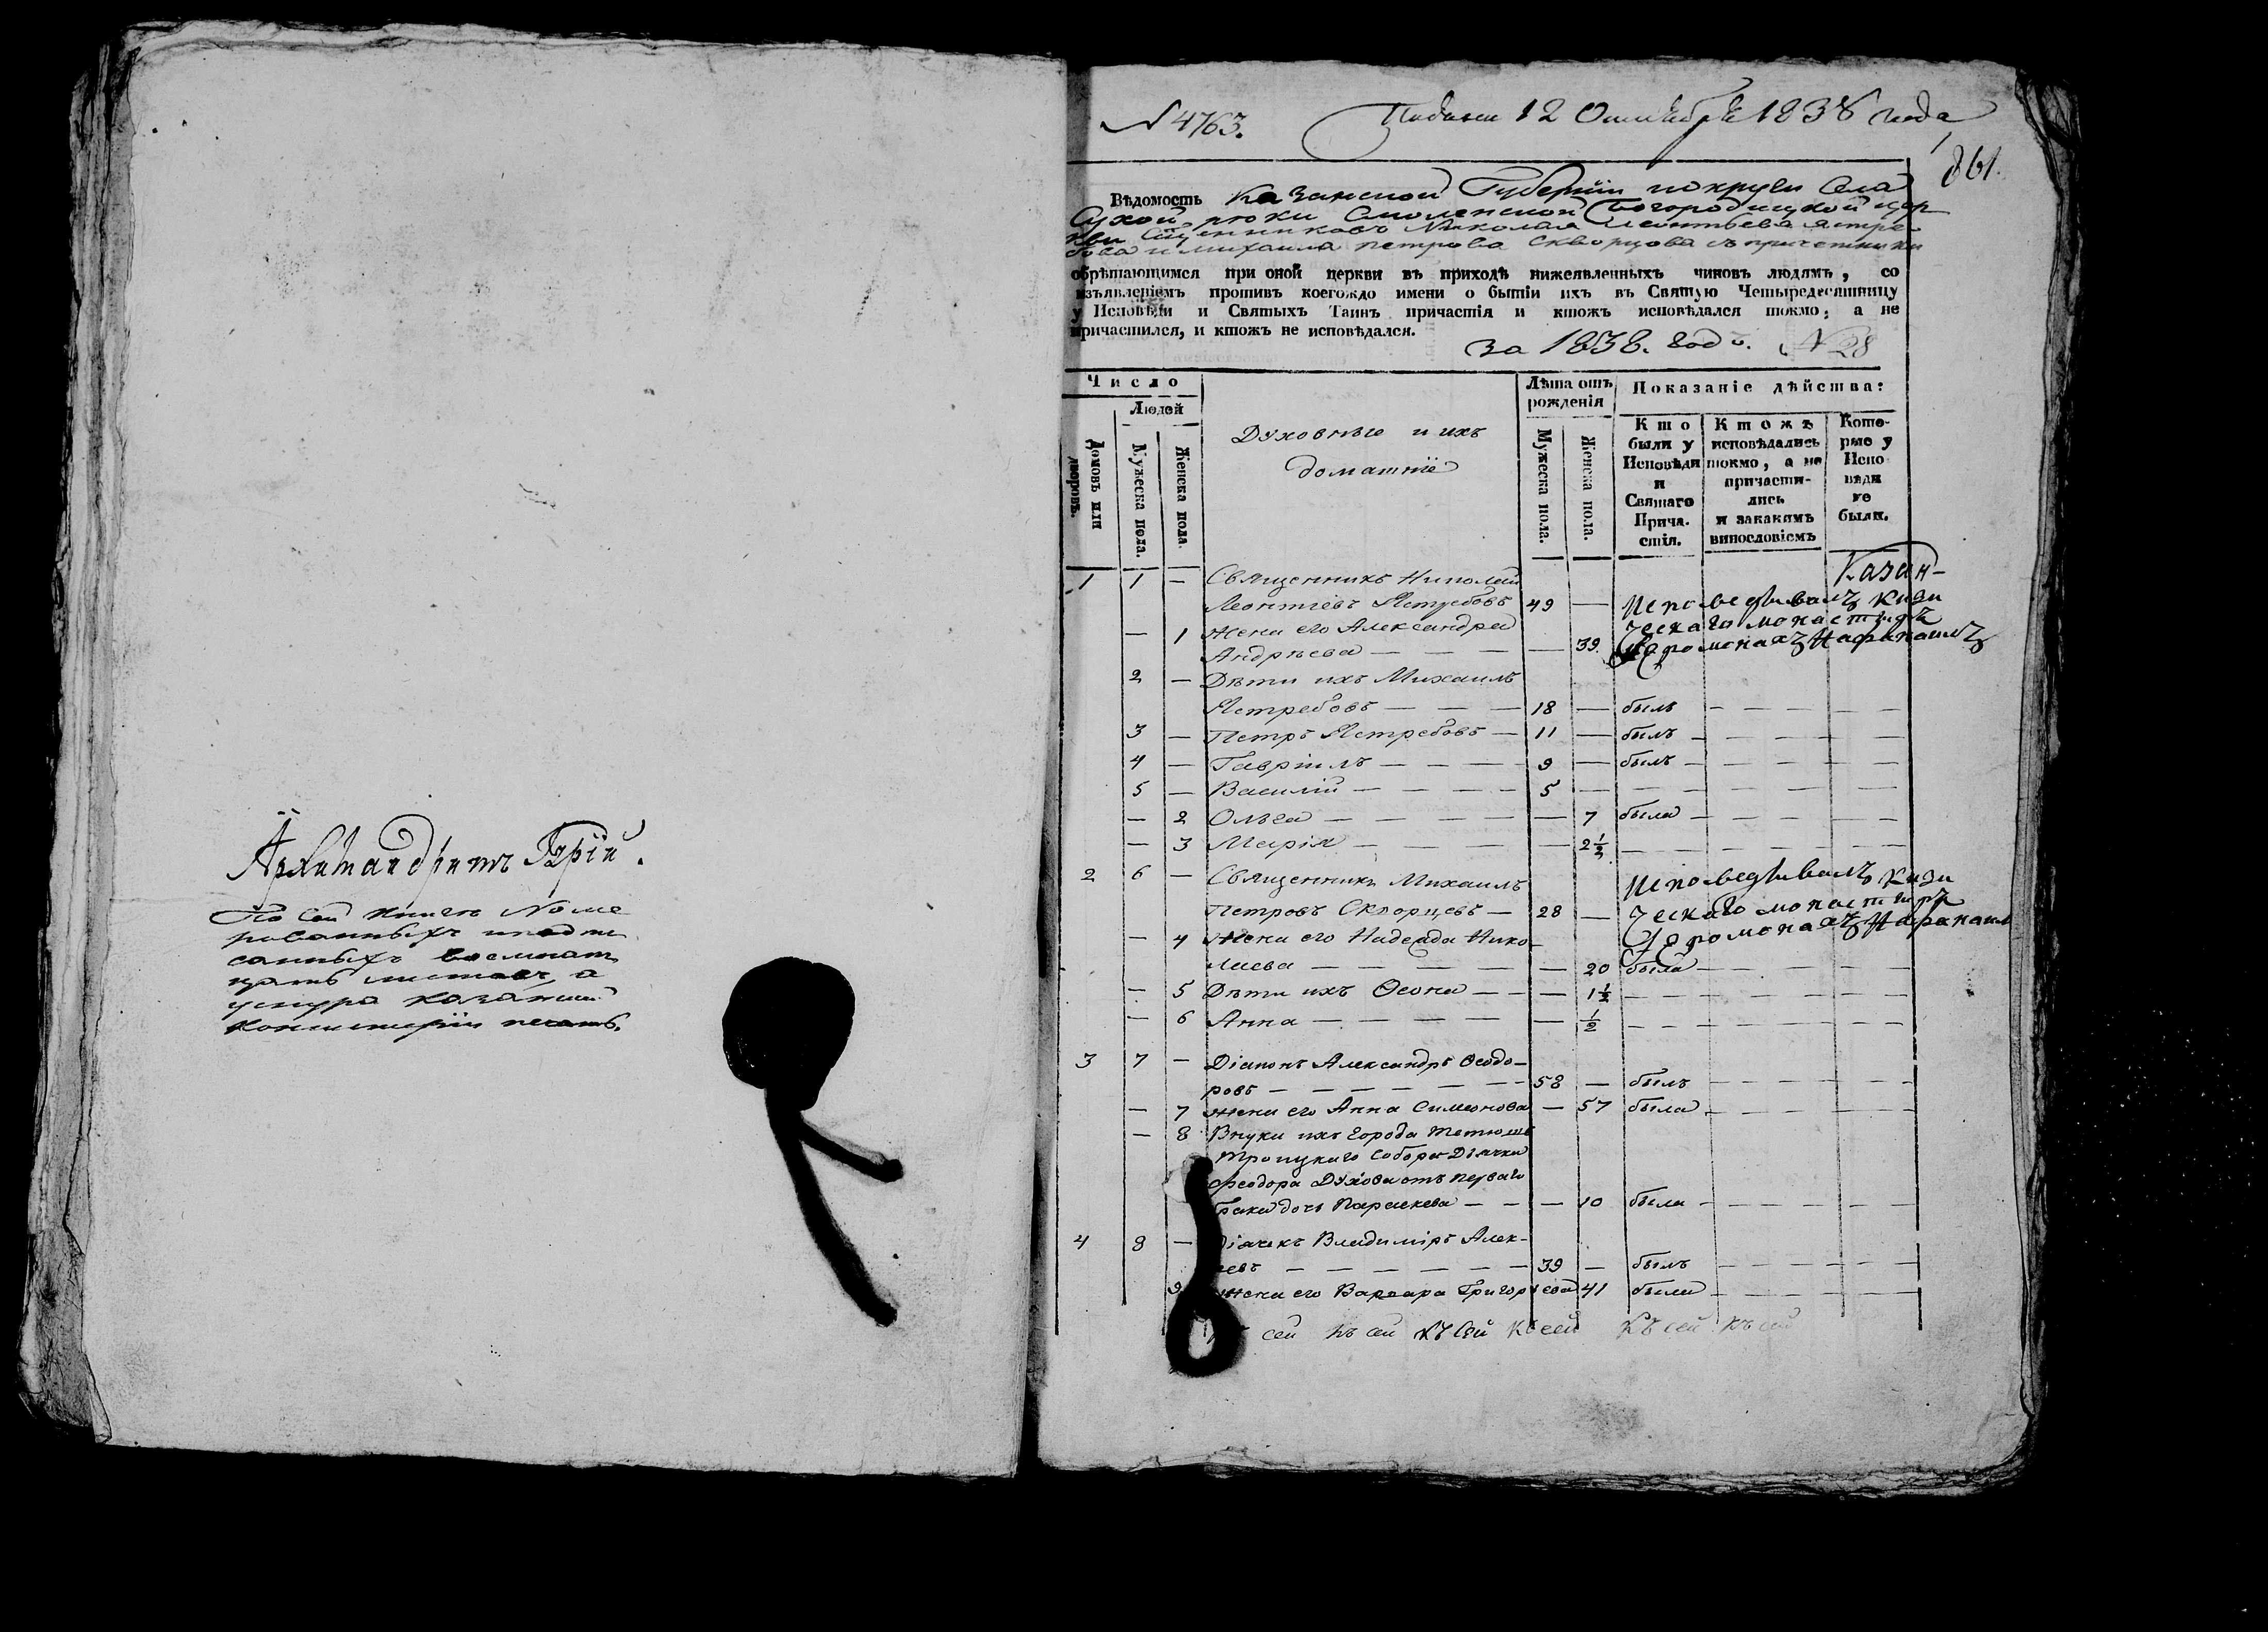 Архимандритъ Гурій.
По сей книге номе
рованныхъ и подпи
санныхъ восмнат
цать листовъ, а
у шнура казанской
консисторіи печать.
N 4763. Подана 12 Октября 1838 года
861.
Вѣдомость Казанской Губерніи округи Села
Сухой рѣки Смоленской Богородицкой цер
кви Священниковъ Николая Леонтьева Ястре-
бова и Михаила Петрова Скворцова съ причетники
обрѣтающимся при оной церкви въ приходѣ нижеявленныхъ чиновъ людямъ, со
изъявленіемъ противъ коегождо имени о бытіи ихъ въ Святую Четыредесятницу
у Исповѣди и Святыхъ Таинъ причастія и ктожъ исповѣдался токмо, а не
причастился, и ктожъ не исповѣдался.
за 1838. годъ. N 28
Число
Людей
Домовъ или дворовъ.
Мужеска пола.
Женска пола.
Духовные и ихъ
домашніе
Лѣта отъ рожденія
Мужеска пола.
Женска пола.
Показаніе дѣйства:
Кто были у Исповѣди и Святаго Прича- стія.
Ктожъ исповѣдались токмо, а не причасти- лись и закакимъ винословіемъ
Кото- рые у Испо вѣди не были.
1 1 — Священникъ Николай Казан-
Леонтіевъ Ястребовъ 49 — Исповедывалъ Кизи
— 1 Жена его Александра ческаго монастыря
Андрѣева — — — — 39. Іеромонахъ Нафанаилъ
2 — Дѣти ихъ Михаилъ
Ястребовъ — — — 18 — былъ — — — — —
3 — Петръ Ястребовъ — 11 — былъ — — — — —
4 — Гавріилъ — — — — 9 — былъ — — — — —
5 — Василій — — — — 5 — — — — — — —
— 2 Ольга — — — — — — 7 была — — — — —
— 3 Марія — — — — — 2½ — — — — — —
2 6 — Священникъ Михаилъ Исповедывалъ Кизи
Петровъ Скворцовъ — 28 — ческаго монастыря
— 4 Жена его Надежда Нико- Іеромонахъ Нафанаилъ
лаева — — — — — — 20 была — — — — —
— 5 Дѣти ихъ Ѳеона — — — 1½ — — — — — —
— 6 Анна — — — — — ½ — — — — — —
3 7 — Діаконъ Александръ Ѳеодо-
ровъ — — — — — — 58 — былъ — — — — —
— 7 Жена его Анна Симеонова — 57 была — — — — —
— 8 Внуки ихъ города Тетюшъ
Троицкаго Собора Дьячка
Ѳеодора Духова отъ перваго
брака дочь Параскева — — — 10 была — — — — —
4 8 — Дьячекъ Владиміръ Алек-
еевъ — — — — — — 39 — былъ — — — — —
9 Жена его Варвара Григорьева 41 была — — — — —
сей къ сей къ сей къ сей къ сей къ сей